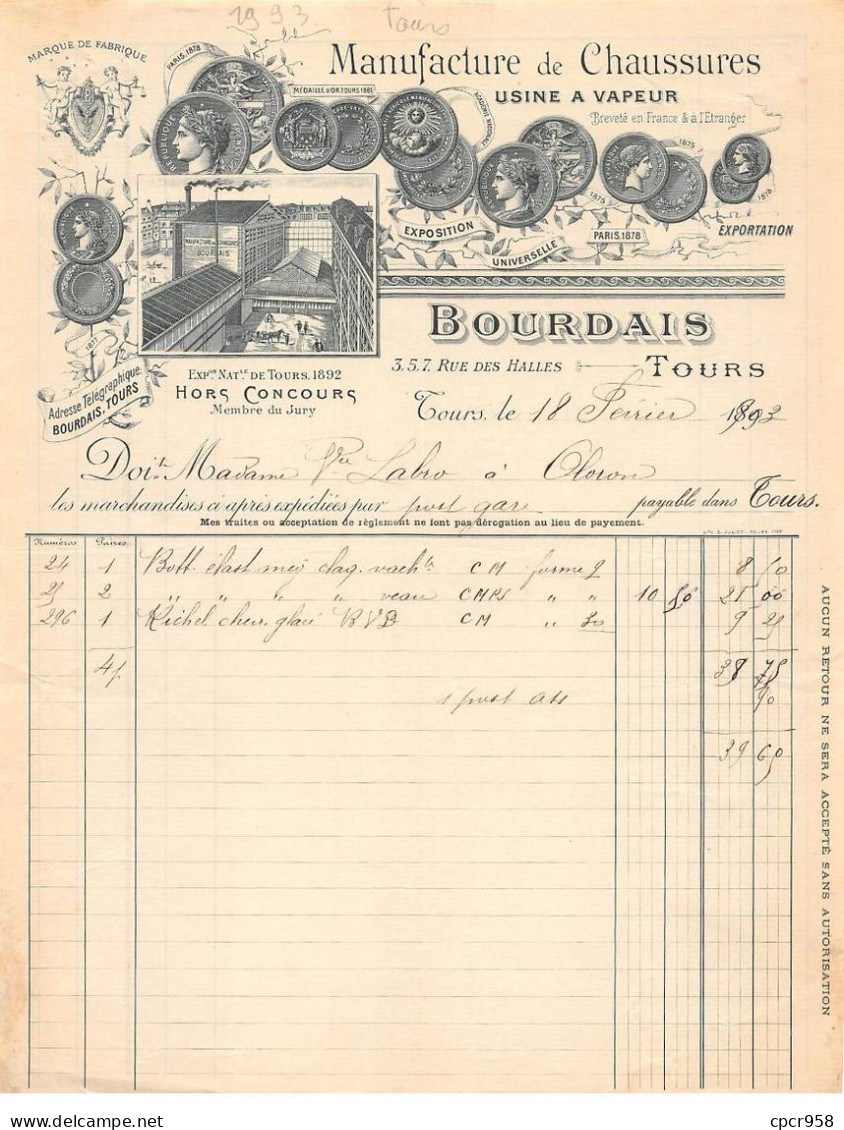 2993. Tours
MARQUE DE FABRIQUE
PARIS.1878
MÉDAILLE D'OR.TOURS 1881
Manufacture de Chaussures
USINE A VAPEUR
Breveté en France & à l'Etranger
ACADÉMIE NATIONALE
RÉPUBLIQUE
1875
1875
1878
EXPOSITION
UNIVERSELLE
PARIS.1878
EXPORTATION
MANUFACTURE DE CHAUSSURES
BOURDAIS
1877
Adresse Télégraphique.
BOURDAIS, TOURS
BOURDAIS
3.5.7. RUE DES HALLES TOURS
EXPon NATLE DE TOURS. 1892
HORS CONCOURS
Membre du Jury
Tours, le 18 Février 1893
Doit Madame Vve Labro à Oloron
les marchandises ci après expédiées par post gare payable dans Tours.
Mes traites ou acceptation de règlement ne font pas dérogation au lieu de payement.
Numéros Paires
24 1 Bott. élast mey clag. vach CM forme 2 8 50
25 2 " " " " veau CMPS " " 10 50 21 00
296 1 Richel. chev. glacé BVB CM " 30 9 25
4 38 75
1 post 90
39 65
AUCUN RETOUR NE SERA ACCEPTÉ SANS AUTORISATION
delcampe.net
cpcr958